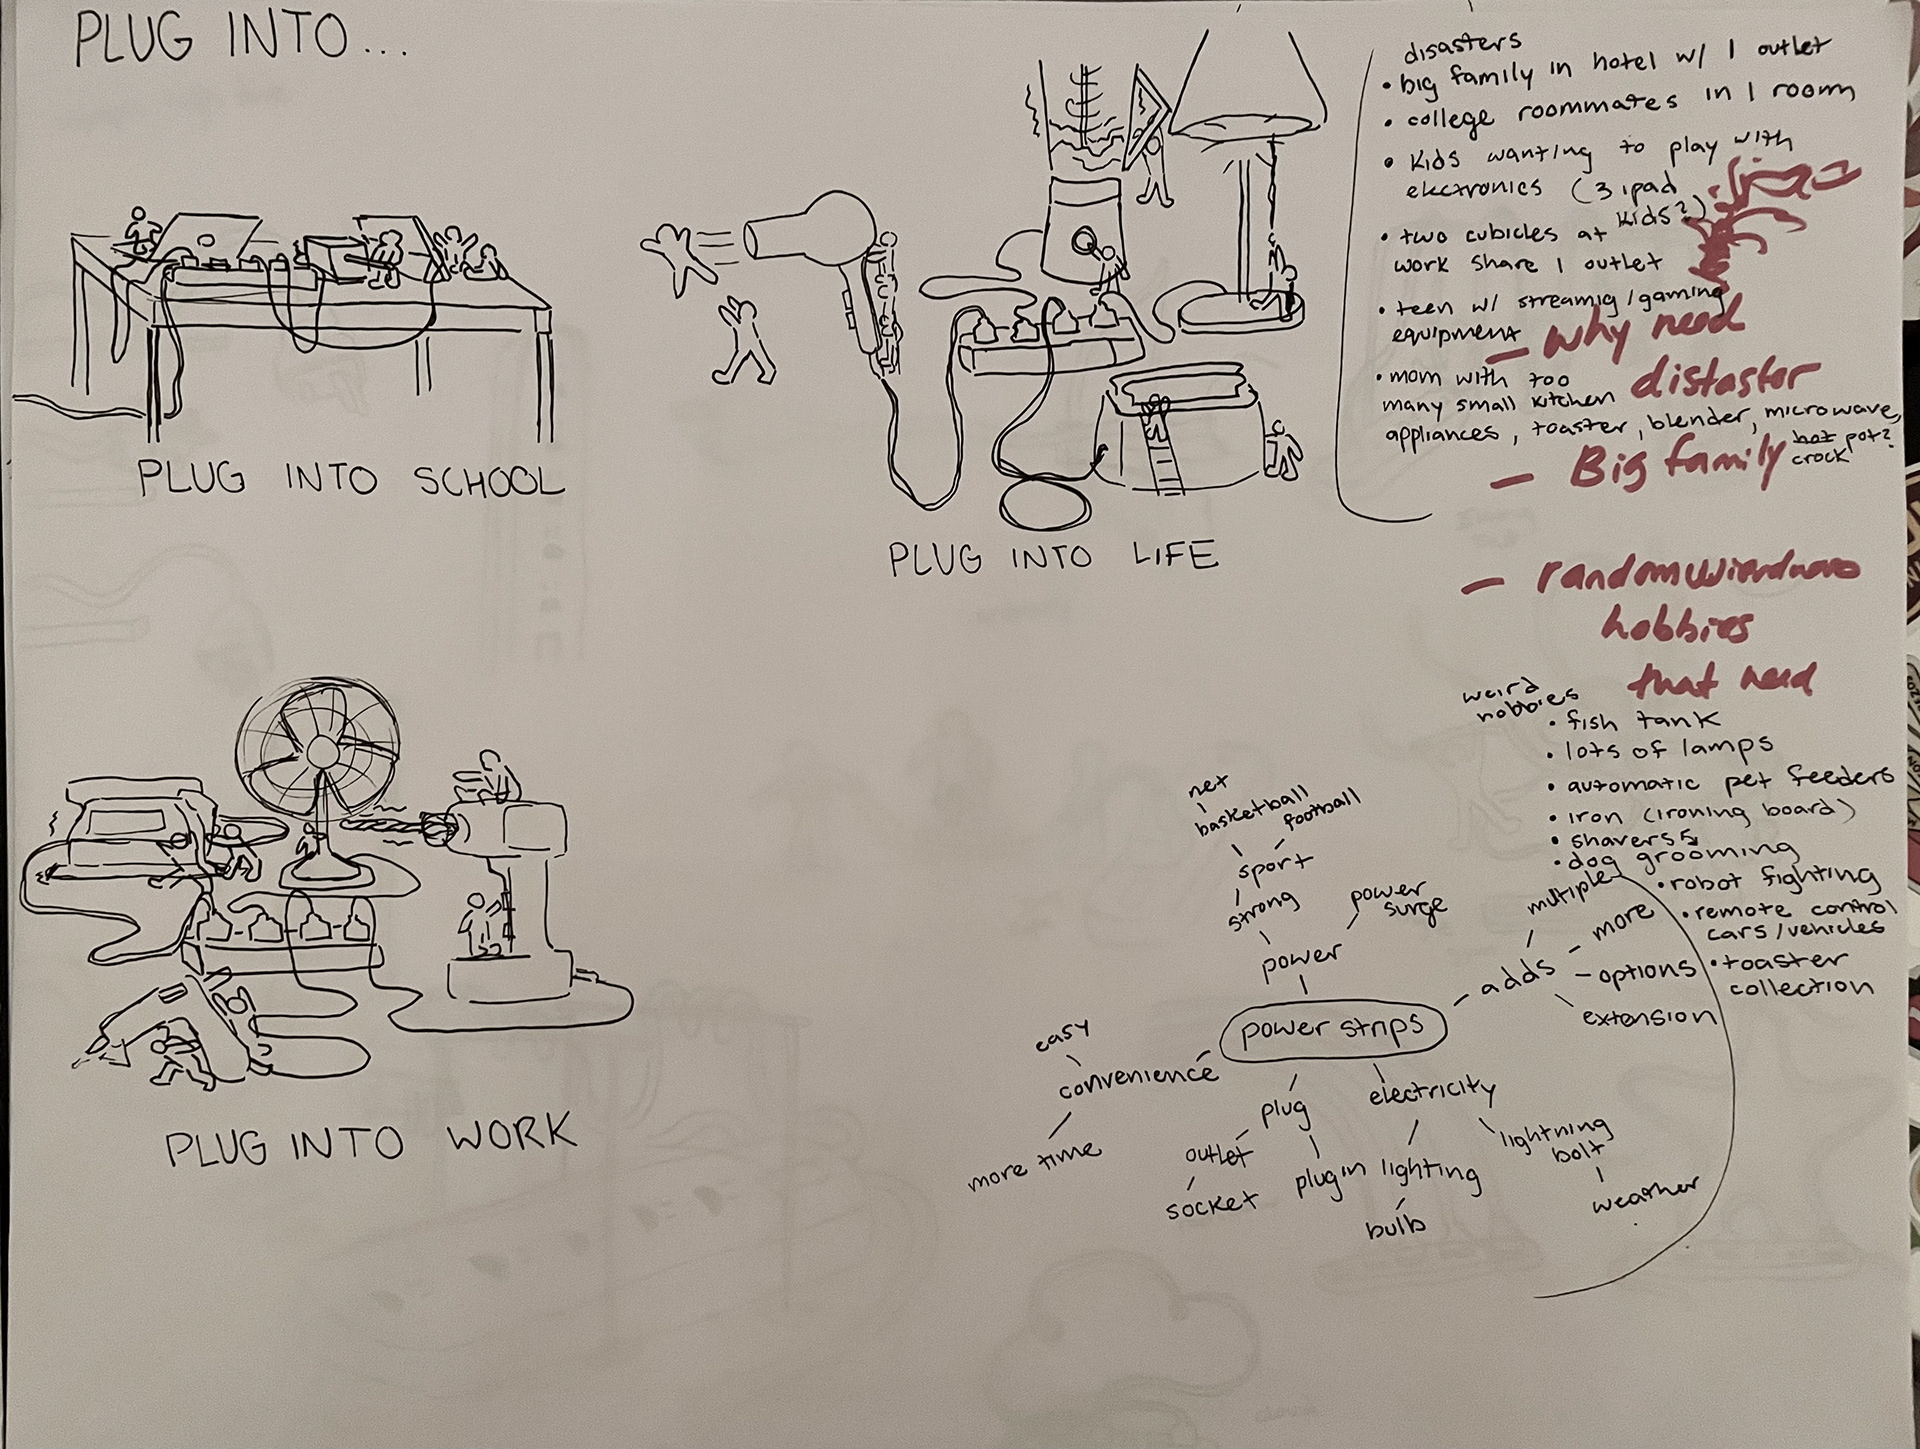 PLUG INTO...
PLUG INTO SCHOOL
PLUG INTO LIFE
PLUG INTO WORK
disasters
• big family in hotel w/ 1 outlet
• college roommates in 1 room
• Kids wanting to play with
electronics (3 ipad
kids?)
• two cubicles at
work share 1 outlet
• teen w/ streamig/gaming
equipment
• mom with too
many small kitchen
appliances, toaster, blender, microwave,
hot pot?
crock
- why need
distaster
- Big family
- random
hobbies
that need
weird
hobbies
• fish tank
• lots of lamps
• automatic pet feeders
• iron (ironing board)
• shavers
• dog grooming
• robot fighting
• remote control
cars/vehicles
• toaster
collection
net
basketball
football
sport
strong
power
surge
power
multiple
more
adds
options
extension
power strips
easy
convenience
more time
plug
outlet
socket
plug in
electricity
lighting
bulb
lightning
bolt
weather